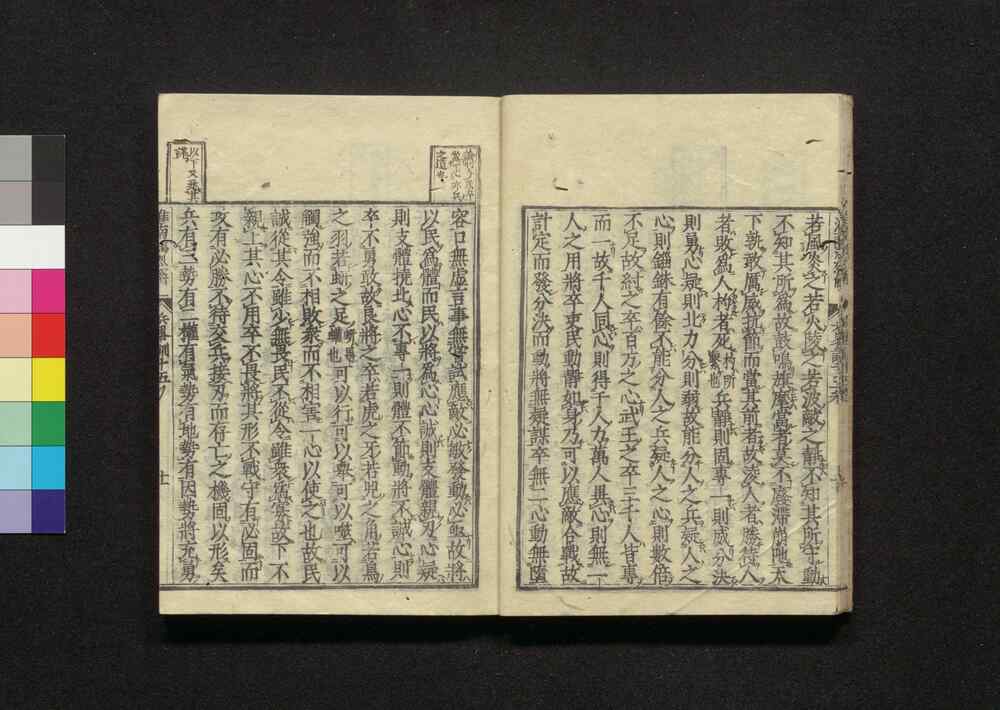 若飆炎之若火陵之若波敵之靜不知其所守動
不知其所爲故鼓鳴旗麾當者莫不廢滯崩阤天
下孰敢厲威抗節而當其前者故凌人者勝待人
者敗爲人杓者死杓所擊也兵靜則固專一則威分決
則勇心疑則北力分則弱故能分人之兵疑人之
心則錙銖有餘不能分人之兵疑人之心則數倍
不足故紂之卒百万之心武王之卒三千人皆專
而一故千人同心則得千人力萬人異心則無一
人之用將卒吏民動靜如身乃可以應敵合戰故
計定而發分決而動將無疑謀卒無二心動無墮
容口無虛言事無嘗試應敵必敏發動必亟故將
以民爲體而民以將爲心心誠則支體親刃心疑
則支體撓北心不專一則體不節動將不誠心則
卒不勇敢故良將之卒若虎之牙若兕之角若鳥
之羽若蚈之足可以行可以舉可以噬可以
觸強而不相敗衆而不相害一心以使之也故民
誠從其令雖少無畏民不從令雖衆爲寡故下不
親上其心不用卒不畏將其形不戰守有必固而
攻有必勝不待交兵接刃而存亡之機固以形矣
兵有三勢有二權有氣勢有地勢有因勢將充勇